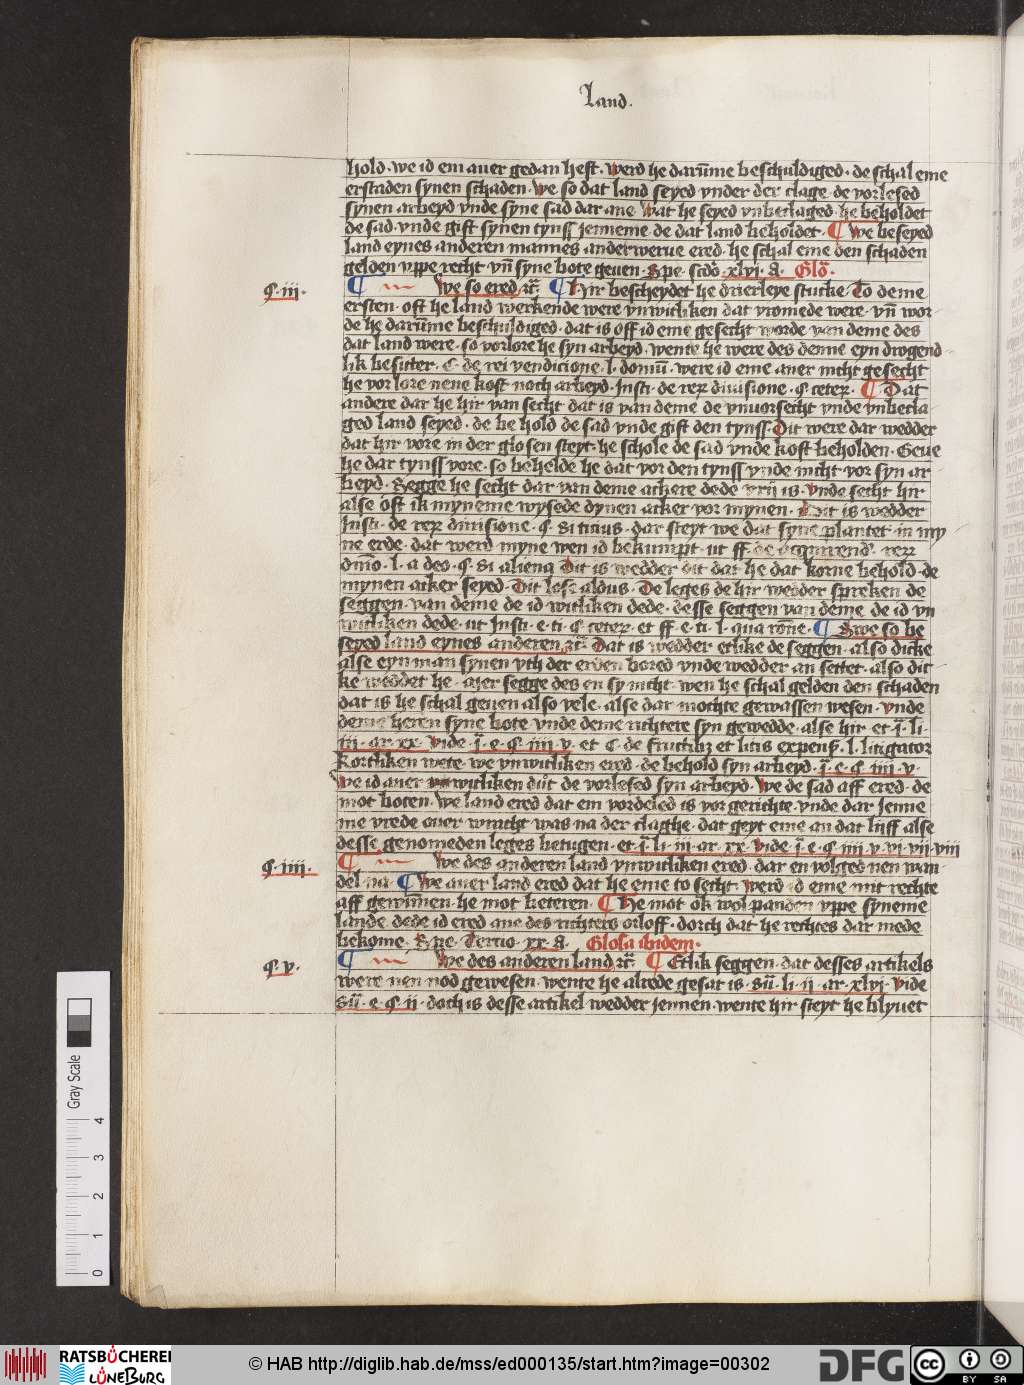 Land.
hold · we id em auer gedan heft · werd he darūme beschuldiged · de schal eme
erstaden synen schaden · We so dat land seyed vnder der clage · de vorlesed
synen arbeyd vnde syne sad dar ane · wat he seyed vnbeclaged · he beholdet
de sad · vnde gift synen tynss jenneme de dat land beholdet · ¶ We beseyed
land eynes anderen mannes anderwerue ered · he schal eme den schaden
gelden vppe recht vn̄ syne bote geuen · Spe · scdo · xlvi · a · Glo ·
¶ · iii · ¶ We so ered ꝛc̄ · ¶ Hir bescheydet he drierleye stucke · To deme
ersten · oft he land werkende were vnwitliken dat vromede were · vn̄ wor-
de he darūme beschuldiged · dat is off id eme gesecht worde van deme des
dat land were · so vorlore he syn arbeyd · wente he were des denne eyn drogend
lik besitter · C · de rei vendicione · l · domū · were id eme auer nicht gesecht
he vorlore nene kost noch arbeyd · Insti · de reꝝ diuisione · § · ceteꝝ · ¶ Dat
andere dar he hir van secht dat is van deme de vnuorsecht vnde vnbecla
ged land seyed · de behold de sad vnde gift den tynss · Dit were dar wedder
dat hir vore in der glosen steyt · he schole de sad vnde kost beholden · Geue
he dar tynss vore · so behelde he dat vor den tynss vnde nicht vor syn ar
beyd · Segge he secht dar van deme ackere dede vrij is · vnde secht hir
alse oft ik myneme wysede dynen acker vor mynen · Dit is wedder
Insti · de reꝝ diuisione · § · Si titius · dar steyt we dat syne plantet in my
ne erde · dat werd myne wen id bekumpt · ut ff · de acquirend · reꝝ
dnio · l · adeo · § · Si aliena Dit is wedder dit dat he dat korne behold · de
mynen acker seyed · Dit lose aldus · De leges de hir wedder spreken de
seggen · van deme de id witliken dede · desse seggen van deme de id vn
witliken dede · ut Insti · e · ti · § · ceteꝝ · et ff · e · ti · l · qua rōne · ¶ Swe so be
seyed land eynes anderen ꝛc̄ · Dat is wedder etlike de seggen · also dicke
alse eyn man synen vth der erden bored vnde wedder an settet · also dic
ke weddet he · auer segge des en sy nicht · wen he schal gelden den schaden
dat is he schal geuen also vele · alse dar mochte gewassen wesen · vnde
deme heren syne bote vnde deme richtere syn gewedde · alse hir et j · li ·
iij · ar · xx · vide · j · e · § · iiij · v · et C · de fructibꝫ et litis expenſ · l · litigator
Kortliken wete · we vnwitliken ered · de behold syn arbeyd · j · e · § · iiij · v ·
We id auer witliken dūt de vorlesed syn arbeyd · We de sad aff ered · de
mot boten · We land ered dat em vordeled is vor gerichte · vnde dar jenne
me vrede ouer wracht was na der claghe · dat geyt eme an dat lijff alse
desse genomeden leges betugen · et j · li · iii · ar · xx · vide · j · e · § · iiij · v · vi · vii · viii
¶ · iiii · ¶ We des anderen land vnwitliken ered · dar en volged nen wan
del na · ¶ We auer land ered dat he eme to secht · werd id eme mit rechte
aff gewūnen · he mot beteren · ¶ He mot ok wol panden vppe syneme
lande · dede id ered ane des richters orloff · dorch dat he rechtes dar mede
bekome · Spe · Tercio · xx · a · Glosa ibidem ·
¶ · v · ¶ We des anderen land ꝛc̄ · ¶ Etlik seggen · dat desses artikels
were nen nod gewesen · wente he alrede gesat is · Sū · li · ij · ar · xlvi · vide
Sū · e · § · ij · doch is desse artikel wedder jennen · wente hir steyt he blyuet
Gray Scale
0 1 2 3 4
RATSBÜCHEREI LÜNEBURG
© HAB http://diglib.hab.de/mss/ed000135/start.htm?image=00302
DFG
cc BY SA